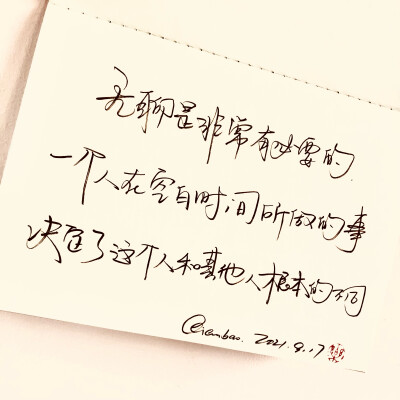 无聊是非常有必要的.
一个人在空白时间所做的事
决定了这个人和其他人根本的不同
2021.9.17